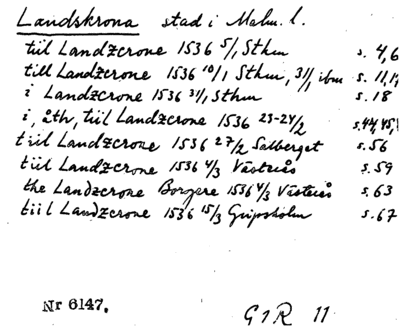 Landskrona stad i Malm. l.
till Landzcrone 1536 5/1 Sthm s. 4,6
till Landzcrone 1536 10/1 Sthm, 31/1 ibm s. 11,
i Landzcrone 1536 31/1 Sthm s. 18
i, till Landzcrone 1536 23-24/2 s. 44, 45,
till Landzcrone 1536 27/2 Salberget s. 56
till Landzcrone 1536 4/3 Västerås s. 59
the Landzcrone Borgere 1536 4/3 Västerås s. 63
till Landzcrone 1536 15/3 Gripsholm s. 67
Nr 6147.
G 1 R 11